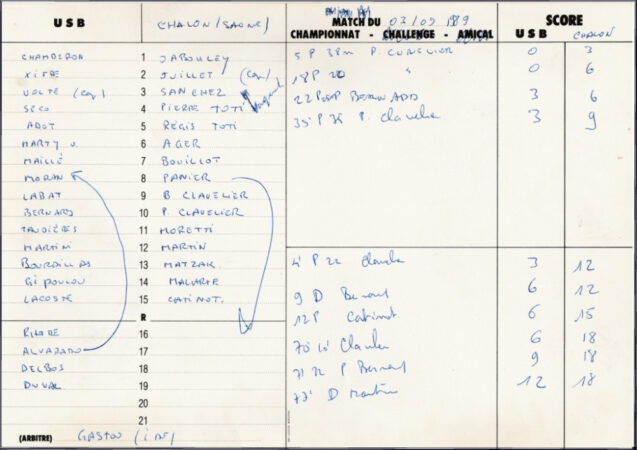 U S B
CHALON (SAONE)
MATCH DU 03/09 1989
CHAMPIONNAT - CHALLENGE - AMICAL
SCORE
U S B CHALON
CHAMBERON 1 JABOULEY
2 JUILLET (cap)
VOLTE (cap) 3 SANCHEZ
SECO 4 PIERRE TOTI
ABOT 5 REGIS TOTI
MARTY J. 6 AGER
MAILLÉ 7 BOUILLOT
MORAN 8 PANIER
LABAT 9 B CLAVELIER
BERNARD 10 P. CLAVELIER
11 MORETTI
MARTIN 12 MARTIN
13 MATZAK
14 MALARTE
LACOSTE 15 CATINOT.
R
16
ALVARADO 17
DELBOS 18
DUVAL 19
20
21
(ARBITRE) GASTOU
5 P P. CLAVELIER 0 3
18 P 20 " 0 6
22 P BERNARD 3 6
35 P P. Clavelier 3 9
4' P 22 Clavelier 3 12
9 D Bernard 6 12
12 P Catinot 6 15
Clavelier 6 18
P Bernard 9 18
73' D Martin 12 18